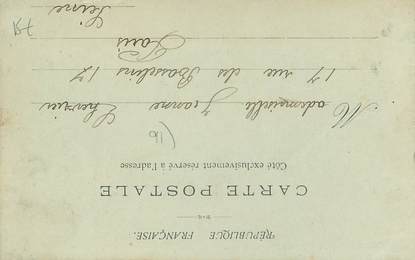 RÉPUBLIQUE FRANÇAISE.
CARTE POSTALE
Côté exclusivement réservé à l'adresse
(16
Mademoiselle Jeanne
17 rue des 17
Paris
Seine